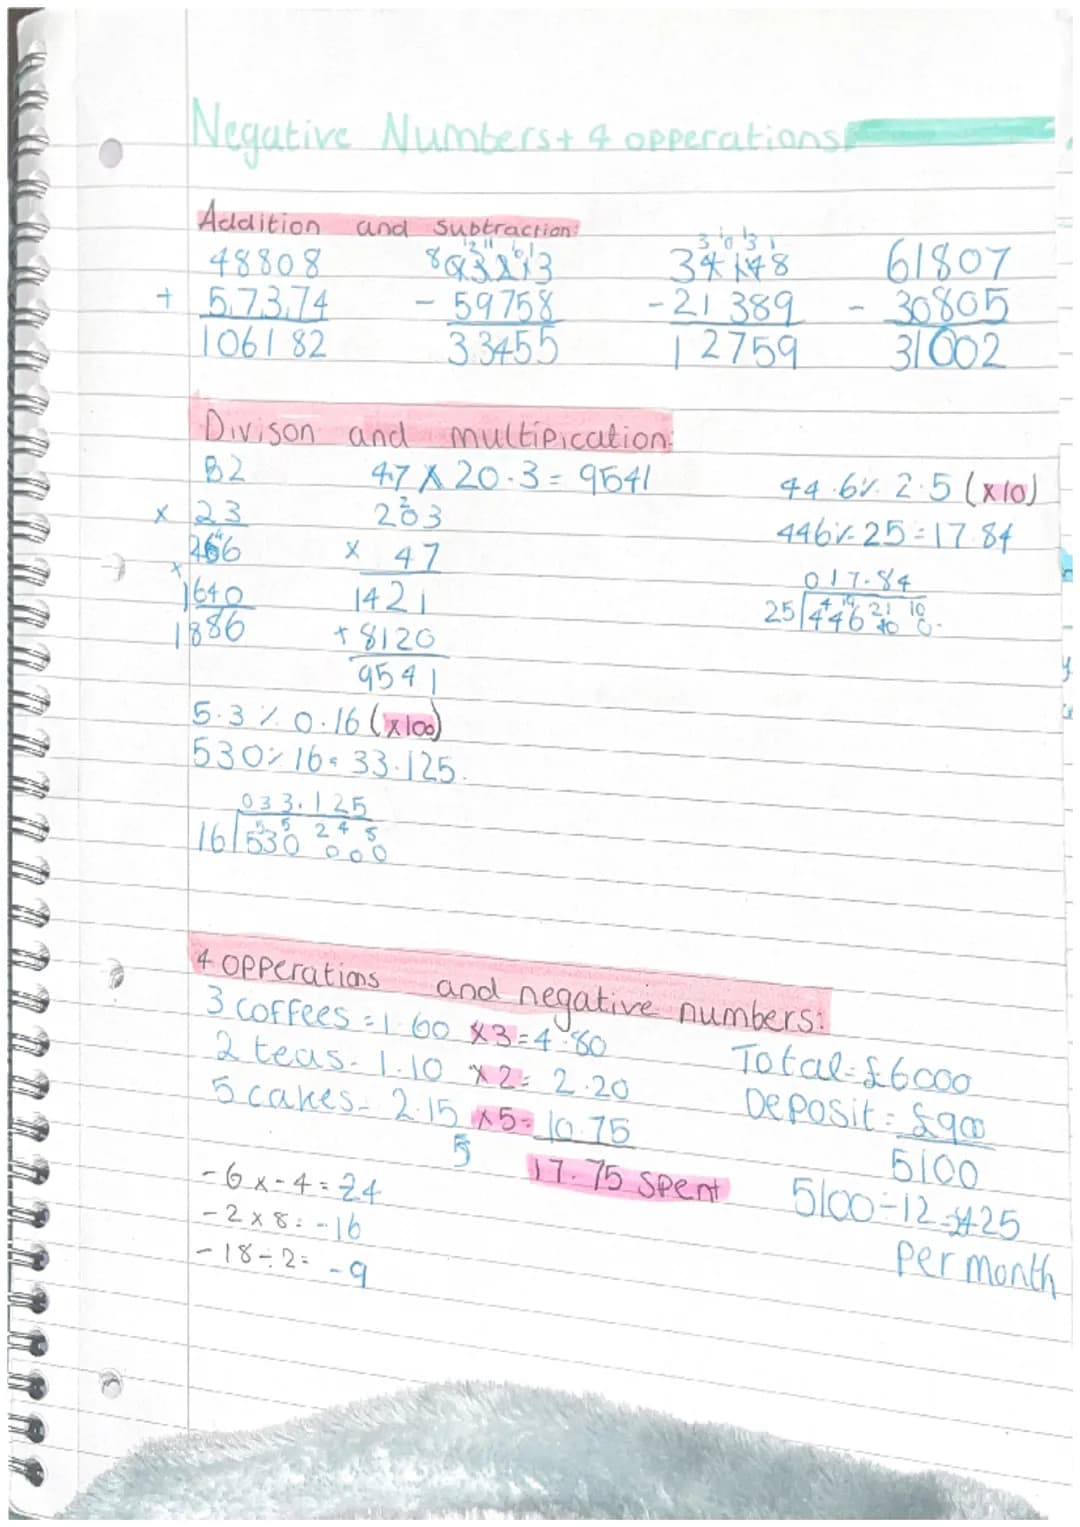 Negative Numbers + 4 opperations
Addition and subtraction:
48808
+ 57374
106182
93213
- 59758
33455
34148
- 21389
12759
61807
- 30805
31002
Divison and multipication:
82
× 23
246
1640
1886
4.7 × 20.3 = 9541
203
× 47
1421
+ 8120
9541
44.6 ÷ 2.5 (×10)
446 ÷ 25 = 17.84
017.84
25 446 00
5.3 ÷ 0.16 (×100)
530 ÷ 16 = 33.125.
033.125
16 530 000
4 opperations and negative numbers:
3 coffees = 1.60 ×3 = 4.80
2 teas = 1.10 ×2 = 2.20
5 cakes = 2.15 ×5 = 10.75
17.75 spent
Total = £6000
Deposit = £900
5100
5100 ÷ 12 = 425
Per month
-6 × -4 = 24
-2 × 8 = -16
-18 ÷ 2 = -9